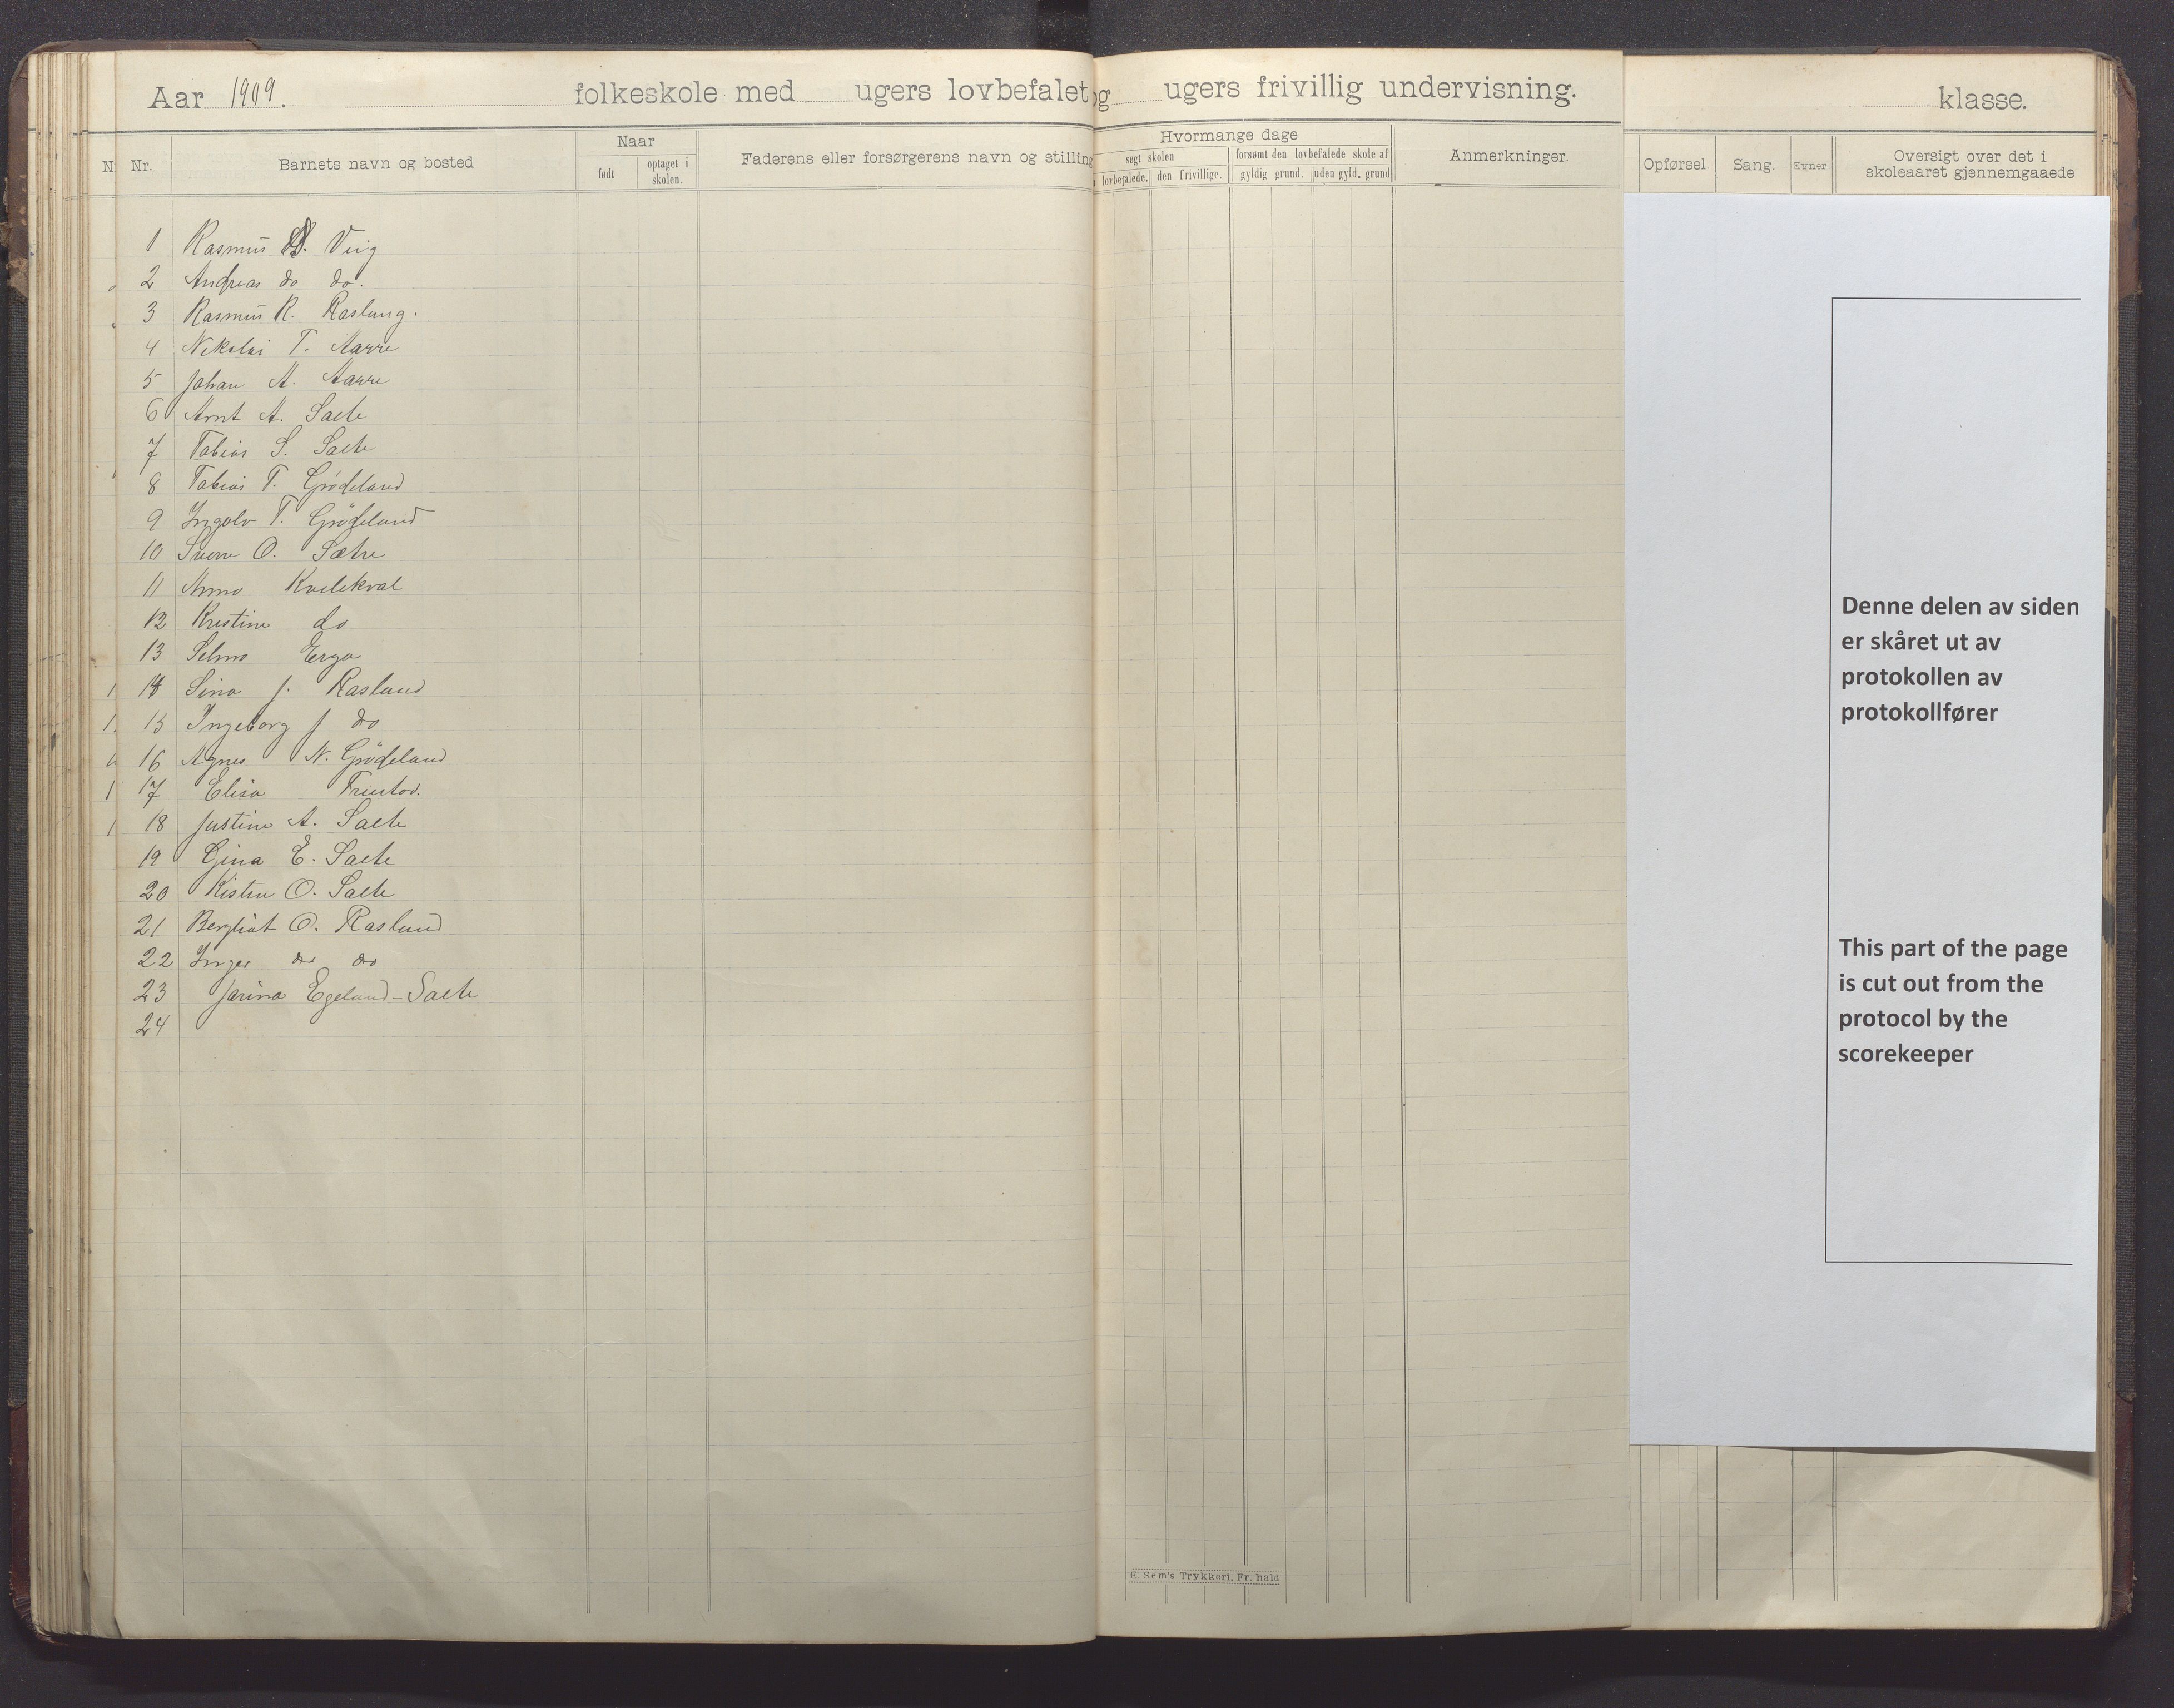 Aar 1909. folkeskole med ugers lovbefalet og ugers frivillig undervisning. klasse.
Nr. Barnets navn og bosted Naar født optaget i skolen. Faderens eller forsørgerens navn og stilling
Hvormange dage søgt skolen lovbefalede. den frivillige. forsømt den lovbefalede skole af gyldig grund. uden gyld. grund Anmerkninger.
Opførsel. Sang. Evner. Oversigt over det i skoleaaret gjennemgaaede
1 Rasmus Veig
2 Andreas do do.
3 Rasmus R. Raslung.
4 Nikolai T. Aarre
5 Johan A. Aarre
6 Arnt A. Saele
7 Tobias S. Saele
8 Tobias T. Grödeland
9 Ingolv T. Grödeland
10 Sverre O. Sætre
11 Anna
12 Kristine do
13 Selma Erga
14 Sina J. Raslund
15 Ingeborg J do
16 Agnes N. Grödeland
17 Elisa
18 Justine A. Saele
19 Gina E. Saele
20 O. Saele
21 Bergliot O. Raslund
22 Inger do do
23 Jarina Egeland-Saele
24
E. Sem's Trykkeri, Fr. hald
Denne delen av siden
er skåret ut av
protokollen av
protokollfører
This part of the page
is cut out from the
protocol by the
scorekeeper